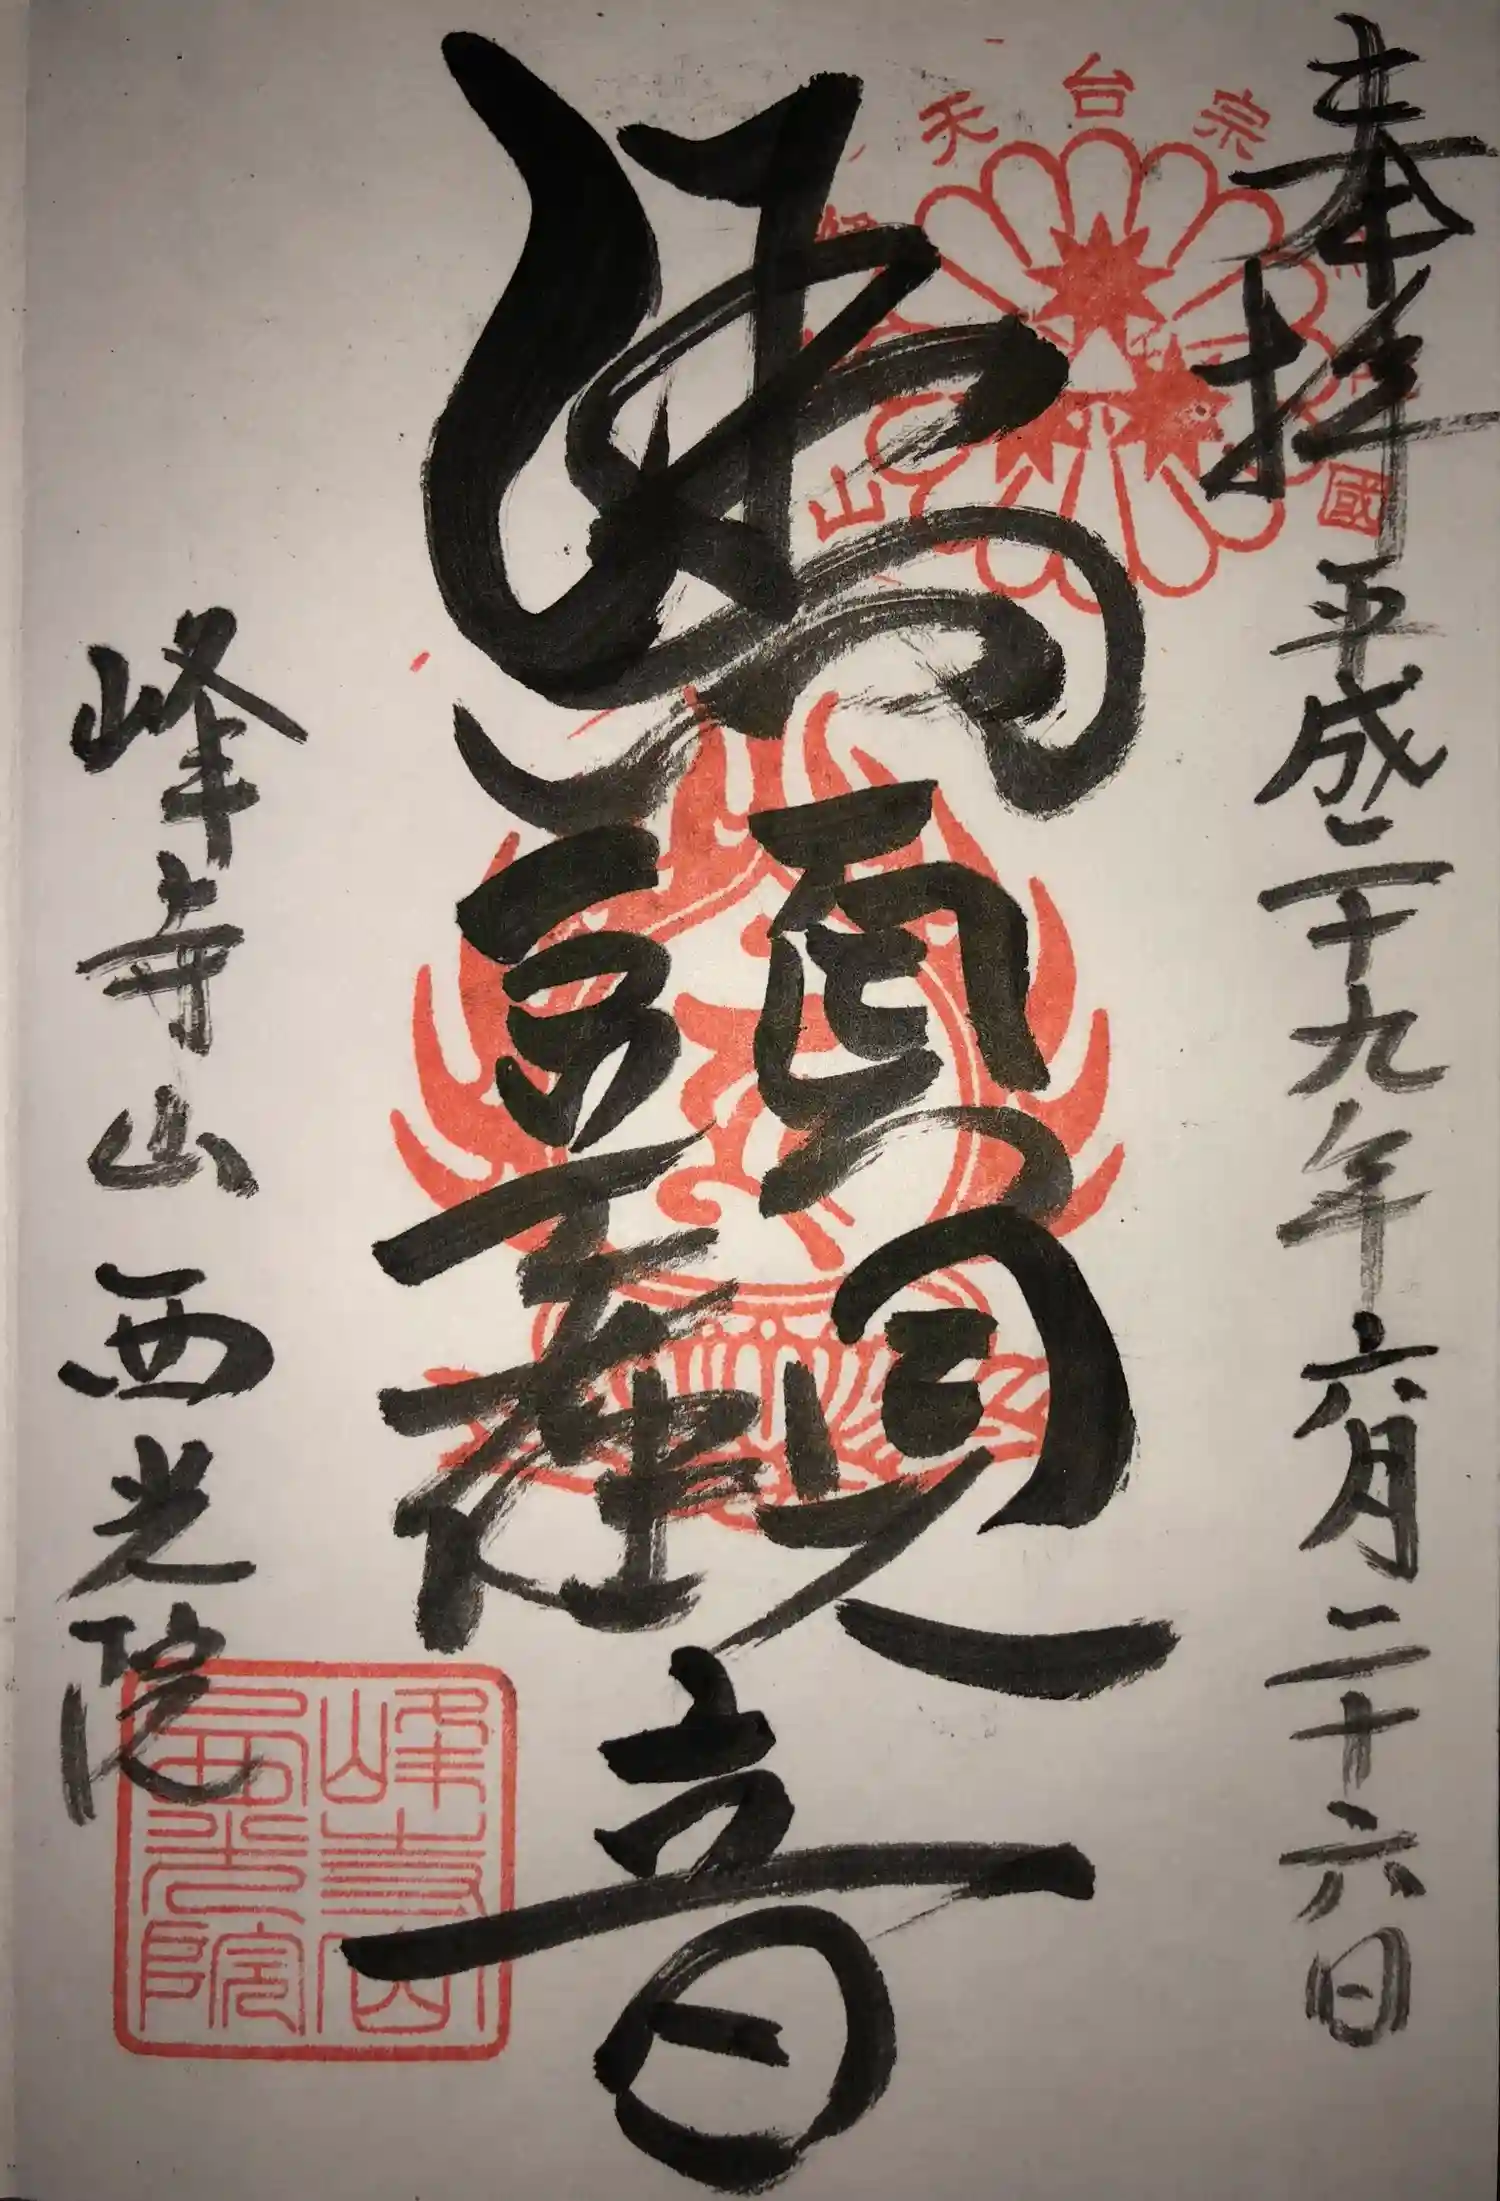 奉拝 平成二十九年六月二十六日
馬頭観音
峰寺山 西光院
天台宗
山
國
峰寺山
西光院